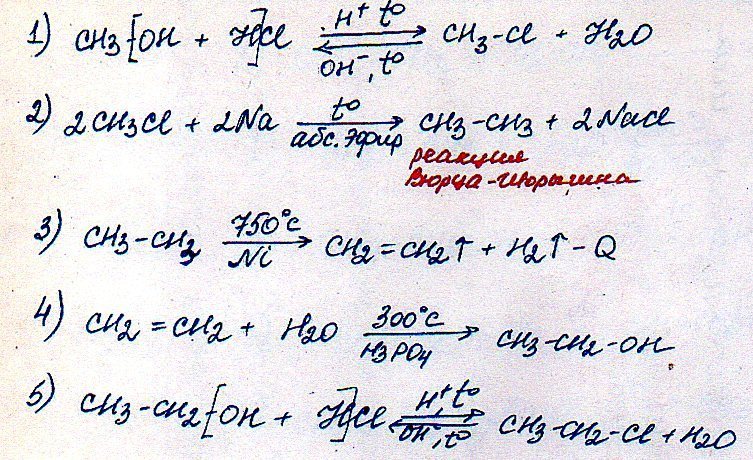 1) CH3[OH + H]Cl ⇄ H+ t° / OH-, t° CH3-Cl + H2O
2) 2CH3Cl + 2Na → t° / абс. эфир CH3-CH3 + 2NaCl
реакция
Вюрца-Шорыгина
3) CH3-CH3 → 750°C / Ni CH2=CH2↑ + H2↑ - Q
4) CH2=CH2 + H2O → 300°C / H3PO4 CH3-CH2-OH
5) CH3-CH2[OH + H]Cl ⇄ H+, t° / OH-, t° CH3-CH2-Cl + H2O